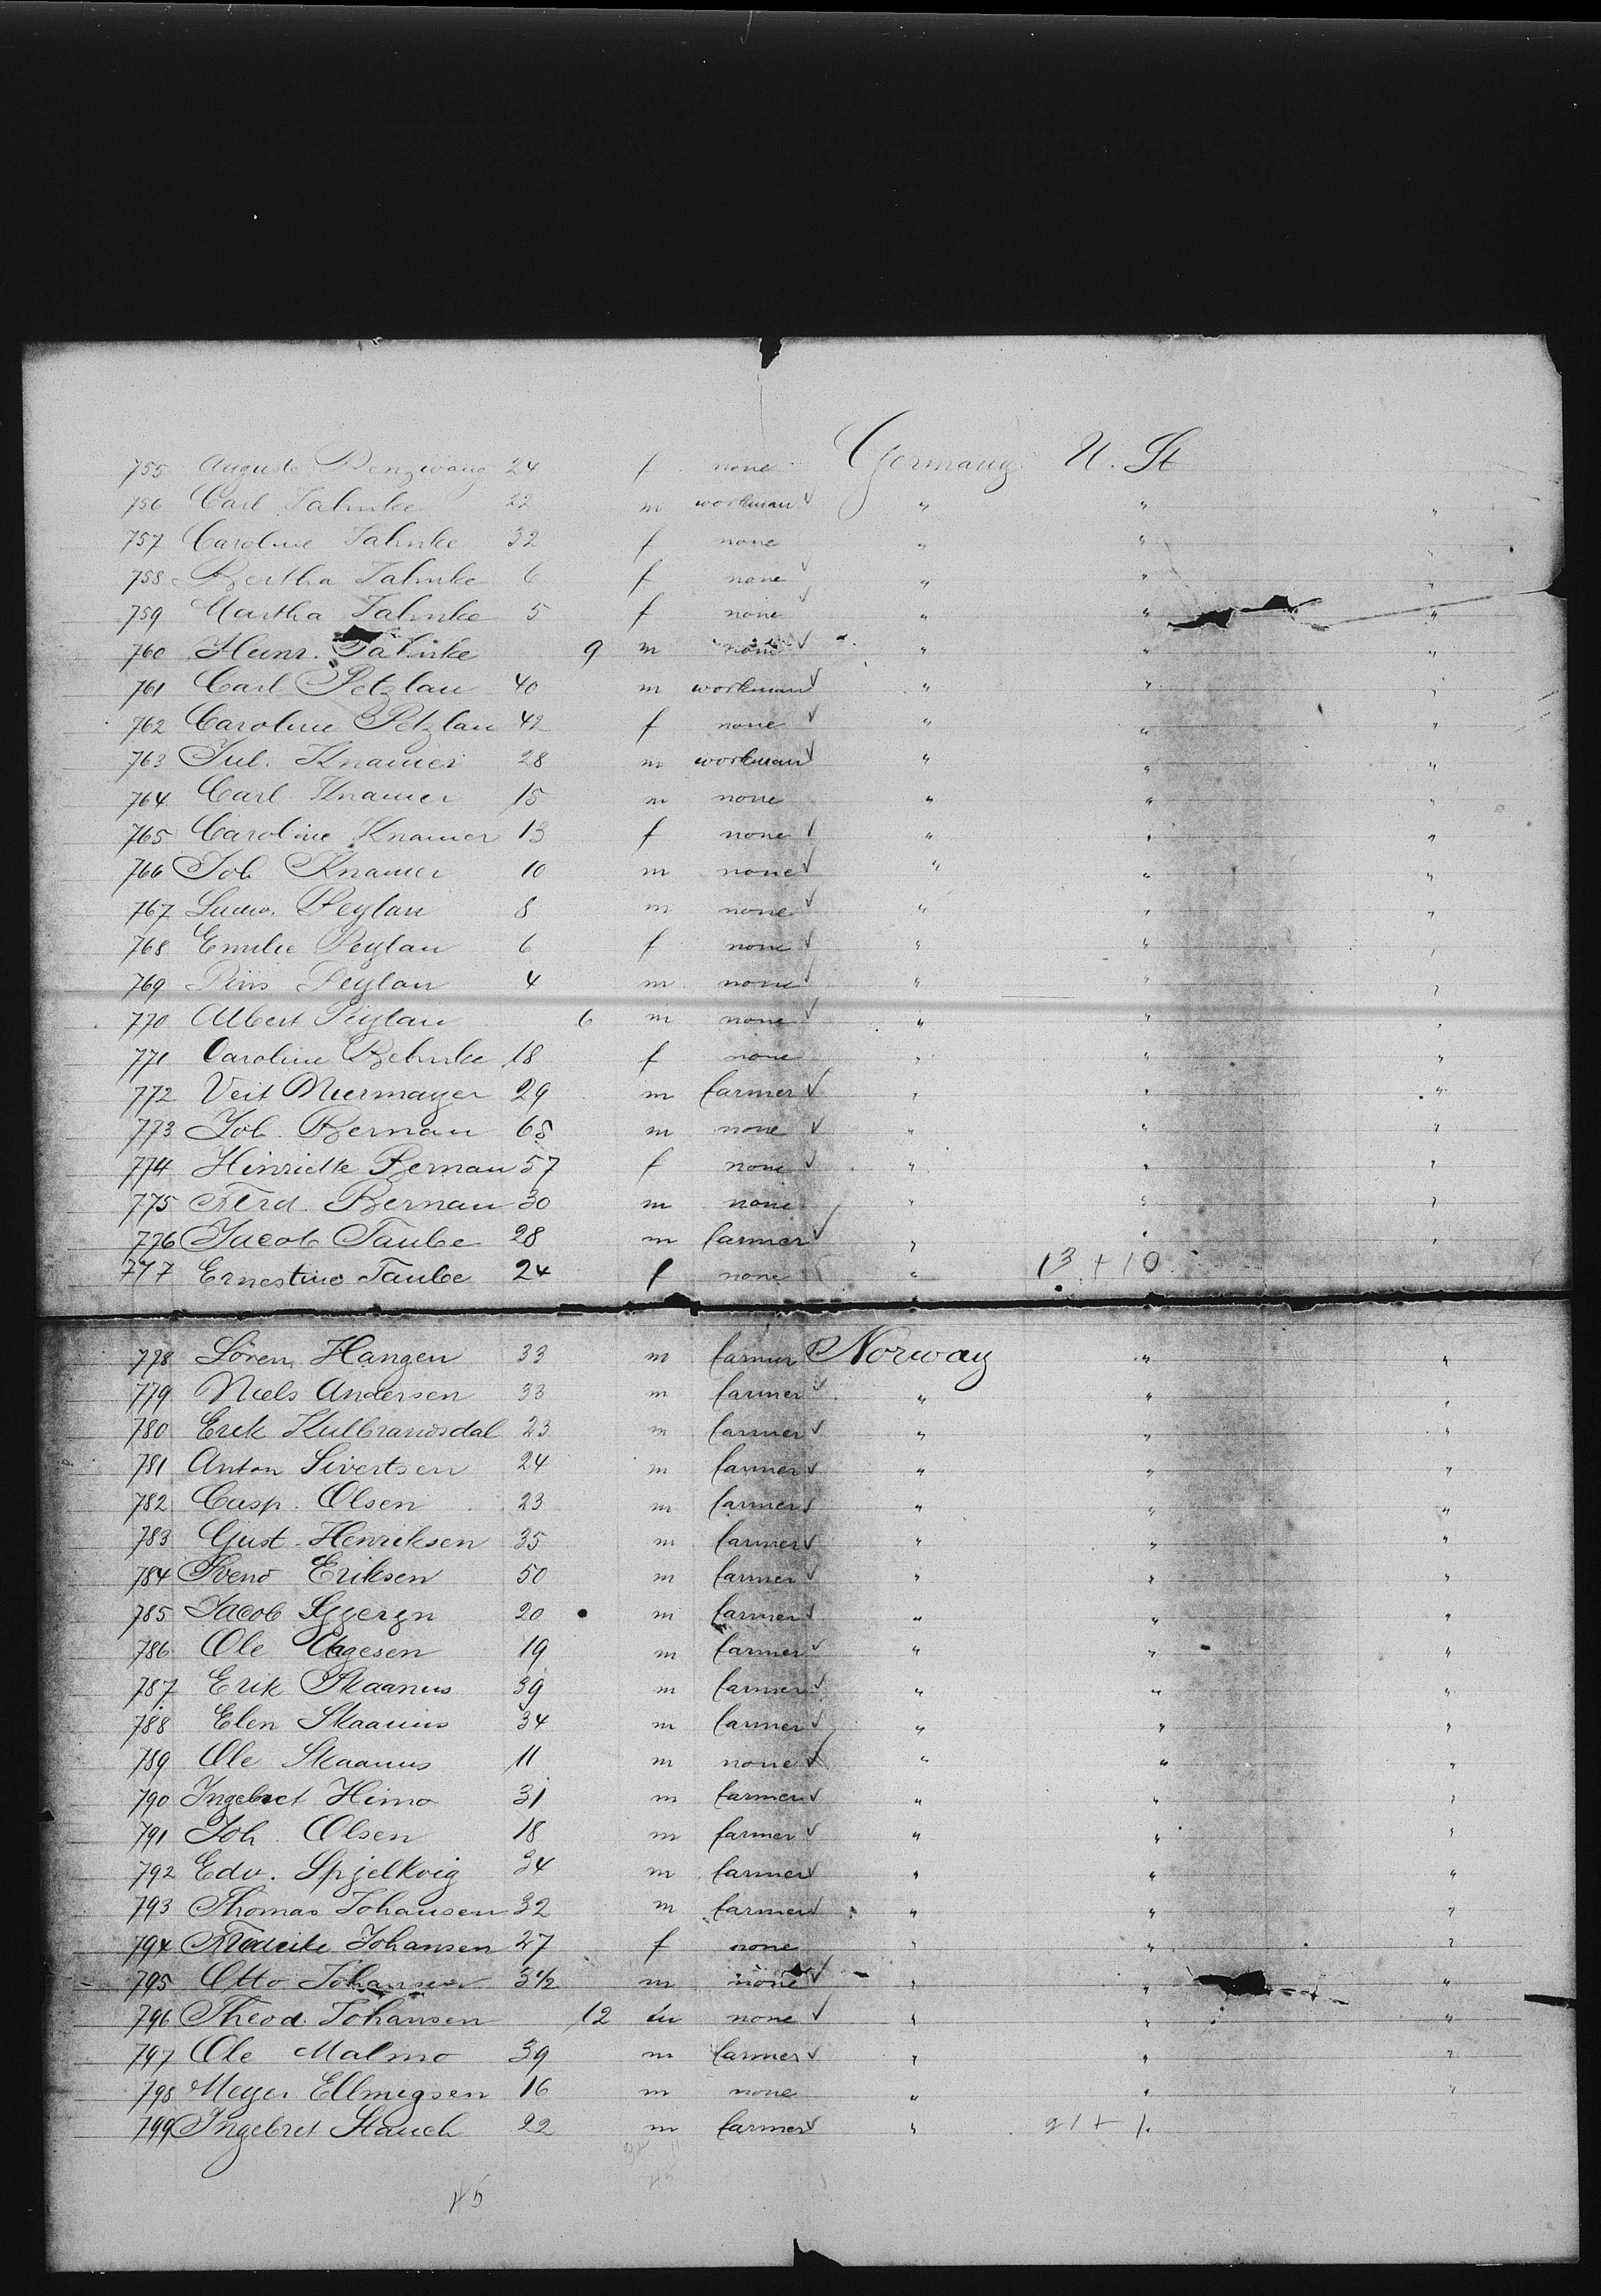 755 Auguste Benzwang 24 f none Germany U. St
756 Carl Jahnke 22 m workman " " "
757 Caroline Jahnke 32 f none " " "
758 Bertha Jahnke 6 f none " " "
759 Martha Jahnke 5 f none " " "
760 Heinr. Jahnke 9 m none " " "
761 Carl Petzlau 40 m workman " " "
762 Caroline Petzlau 42 f none " " "
763 Jul. Knamer 28 m workman " " "
764 Carl Knamer 15 m none " " "
765 Caroline Knamer 13 f none " " "
766 Joh Knamer 10 m none " " "
767 Ludw. Peylau 8 m none " " "
768 Emilie Peylau 6 f none " " "
769 Peylau 4 m none " " "
770 Albert Peylau 6 m none " " "
771 Caroline Behnke 18 f none " " "
772 Veit Miermayer 29 m farmer " " "
773 Joh. Bernau 65 m none " " "
774 Hinriette Bernau 57 f none " " "
775 Ferd. Bernau 30 m none " " "
776 Jacob Taube 28 m farmer " " "
777 Ernestine Taube 24 f none " 13 + 10
778 Sören Hangen 33 m farmer Norway " "
779 Niels Andersen 33 m farmer " " "
780 Erik Kulbrandsdal 23 m farmer " " "
781 Anton Sivertsen 24 m farmer " " "
782 Casp. Olsen 23 m farmer " " "
783 Gust. Henriksen 35 m farmer " " "
784 Svend Eriksen 50 m farmer " " "
785 Jacob 20 m farmer " " "
786 Ole Aagesen 19 m farmer " " "
787 Erik Skaanus 39 m farmer " " "
788 Elen Skaanus 34 m farmer " " "
789 Ole Skaanus 11 m none " " "
790 Ingebret Himo 31 m farmer " " "
791 Joh. Olsen 18 m farmer " " "
792 Edv. Spjelkvig 34 m farmer " " "
793 Thomas Johansen 32 m farmer " " "
794 Frederike Johansen 27 f none " " "
795 Otto Johansen 3 1/2 m none " " "
796 Theod. Johansen 12 m none " " "
797 Ole Malmo 39 m farmer " " "
798 Meyer Ellmigsen 16 m none " " "
799 Ingebret Stauch 22 m farmer " 21 + 1.
45